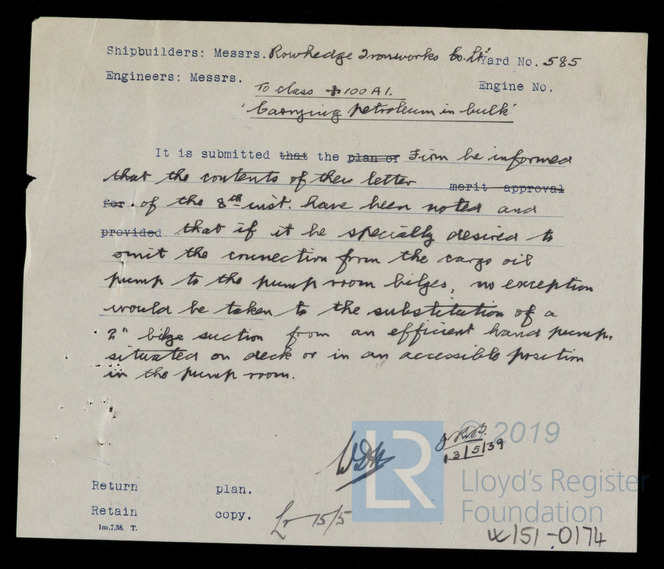 Shipbuilders: Messrs. Rowhedge Ironworks Co. Ltd Yard No. 585
Engineers: Messrs. Engine No.
To class ✠ 100 A1.
'Carrying petroleum in bulk'
It is submitted that the plan of Firm be informed
that the contents of their letter merit approval
for of the 8th inst. have been noted and
provided that if it be specially desired to
omit the connection from the cargo oil
pump to the pump room bilges, no exception
would be taken to the substitution of a
2" bilge suction from an efficient hand pump,
situated on deck or in an accessible position
in the pump room.
© 2019
13/5/39
LR
Lloyd's Register
Foundation
Return plan.
Retain copy.
Lr 15/5
1m.7.38. T.
W151-0174